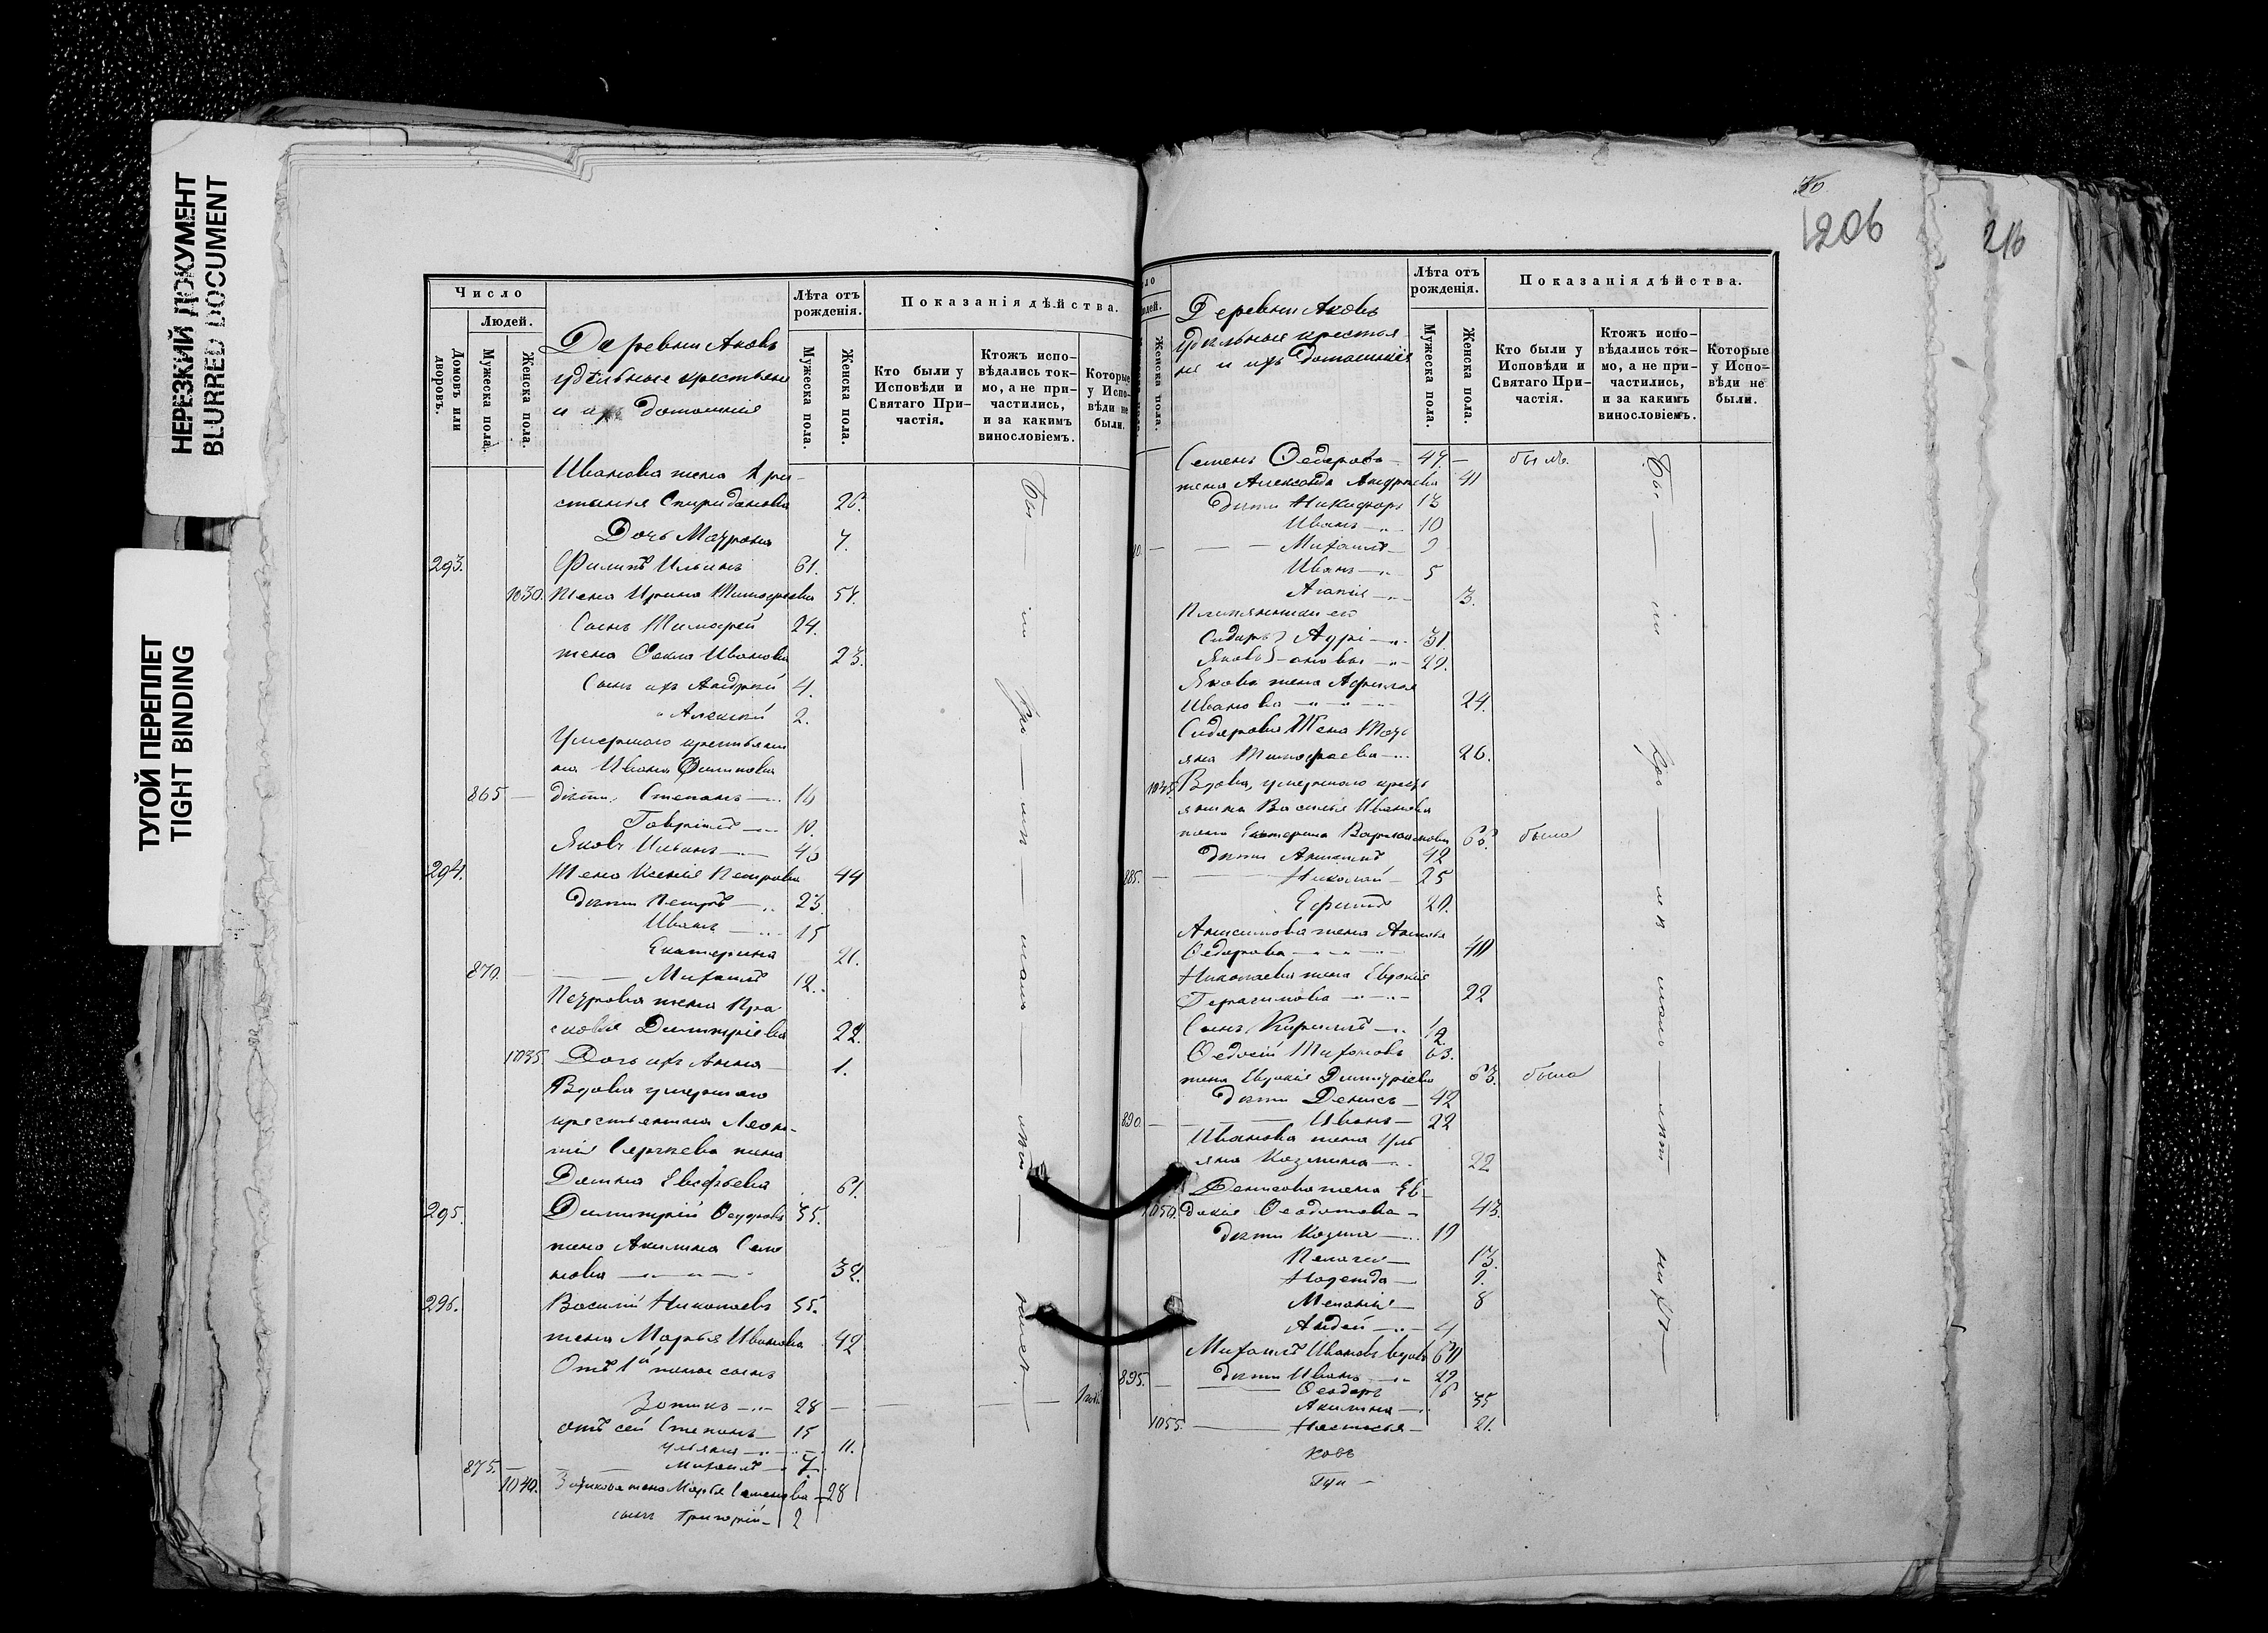 НЕРЕЗКИЙ ДОКУМЕНТ
BLURRED DOCUMENT
ТУГОЙ ПЕРЕПЛЕТ
TIGHT BINDING
Число
Людей.
Домовъ или дворовъ.
Мужеска пола.
Женска пола.
Деревни Аковъ
удѣльные крестьяне
и ихъ домашнія
Лѣта отъ рожденія.
Мужеска пола.
Женска пола.
Показанія дѣйства.
Кто были у Исповѣди и Святаго Причастія.
Ктожъ исповѣдались токмо, а не причастились, и за какимъ винословіемъ.
Которые у Исповѣди не были.
Иванова жена Хри-
стинья Спиридонова 26.
Дочь Мавроніа 7.
293. Филипъ Ильинъ 61.
1030. Жена Ирина Тимофеева 57.
Сынъ Тимофей 24.
жена Фекла Иванова 23.
Сынъ ихъ Андрей 4.
Алексѣй 2.
Умершаго крестьяни
на Ивана Филипова
865 дѣти, Степанъ 16
Гавріилъ 10.
Яковъ Ильинъ 46
294. Жена Ксенія Петрова 44
дѣти Петръ 23.
Иванъ 15
Екатерина 21.
870. Михаилъ 12.
Петрова жена Пра
сковія Димитріева 22.
1035 Дочь ихъ Анна 1.
Вдова умершаго
крестьянина Леон-
тія Сергѣева жена
Домна Евсѣвьева 61.
295. Димитрій Ѳедоровъ 35.
жена Акилина Семе
нова 32.
296. Василій Николаевъ 55.
жена Марья Иванова 42
Отъ 1й жены сынъ
Зотикъ 28
отъ сей Степанъ 15
Ульяна 11.
875. Михаилъ 7.
1040. Зотикова жена Марья Семенова 28
сынъ Григорій 2
206
216
Женска пола.
Деревни Аковъ
удѣльные крестья
не и ихъ домашнія
Лѣта отъ рожденія.
Мужеска пола.
Женска пола.
Показанія дѣйства.
Кто были у Исповѣди и Святаго Причастія.
Ктожъ исповѣдались токмо, а не причастились, и за какимъ винословіемъ.
Которые у Исповѣди не были.
Семенъ Ѳедоровъ 47. былъ.
жена Александра Андреева 41
дѣти Никифоръ 13
Иванъ 10
Михаилъ 9
Иванъ 5
Агапія 3.
Племянники ея
Сидоръ } Андрі 31.
Яковъ } ановы 29.
Якова жена Афимья
Иванова 24.
Сидорова Жена Мат
яна Тимофеева 26.
1045. Вдова, умершаго кресть
янина Василья Иванова
жена Екатерина Варламова 66. была
дѣти Анисимъ 42
885. Николай 25
Ефимъ 20.
Анисимова жена Анна
Ѳедорова 40
Николаева жена Евдокія
Герасимова 22
Сынъ Кириллъ 1/2
Ѳедосій Тихоновъ 63.
жена Евдокія Димитріева 63. была
дѣти Денисъ 42
890. Иванъ 22
Иванова жена Уль
яна Козмина 22
Денисова жена Ев-
1050. докія Ѳеодотова 43.
дѣти Козма 19
Пелагея 13.
Надежда 9.
Меланія 8
Андрей 4
Михаилъ Ивановъ вдовъ 60
895. дѣти Иванъ 29
Ѳеодоръ 16
Акилина 35
1055. Настасья 21.